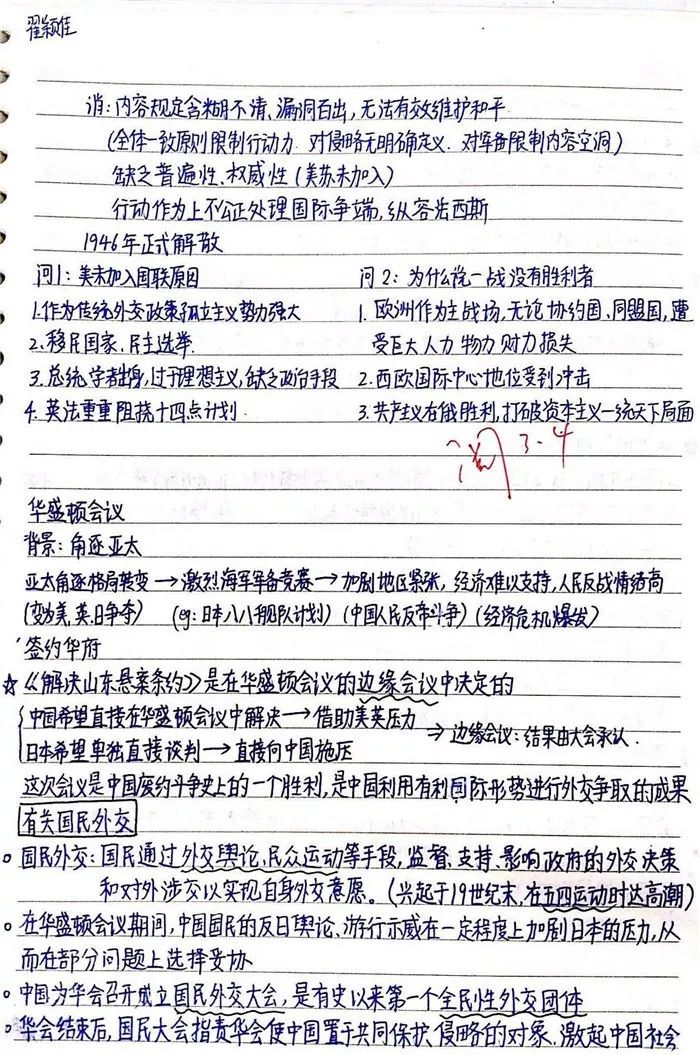 翟颖佳
消:内容规定含糊不清、漏洞百出,无法有效维护和平
(全体一致原则限制行动力. 对侵略无明确定义. 对军备限制内容空洞)
缺乏普遍性、权威性(美苏未加入)
行动作为上不公正处理国际争端,纵容法西斯
1946年正式解散
问1:美未加入国联原因
1.作为传统外交政策孤立主义势力强大
2.移民国家、民主选举.
3.总统学者出身,过于理想主义,缺乏政治手段
4.英法重重阻挠十四点计划.
问2:为什么说一战没有胜利者
1.欧洲作为主战场,无论协约国、同盟国,遭
受巨大人力 物力 财力损失
2.西欧国际中心地位受到冲击
3.共产主义在俄胜利,打破资本主义一统天下局面
阅 3.4
华盛顿会议
背景:角逐亚太
亚太角逐格局转变→激烈海军军备竞赛→加剧地区紧张,经济难以支持,人民反战情绪高
(变为美、英、日争夺) (eg:日本八八舰队计划) (中国人民反帝斗争) (经济危机爆发)
签约华府
☆《解决山东悬案条约》是在华盛顿会议的边缘会议中决定的
中国希望直接在华盛顿会议中解决→借助美英压力
日本希望单独直接谈判→直接向中国施压
→边缘会议:结果由大会承认.
这次会议是中国废约斗争史上的一个胜利,是中国利用有利国际形势进行外交争取的成果
有关国民外交
。国民外交:国民通过外交舆论、民众运动等手段,监督、支持、影响政府的外交决策
和对外涉交以实现自身外交意愿。(兴起于19世纪末,在五四运动时达高潮)
。在华盛顿会议期间,中国国民的反日舆论、游行示威在一定程度上加剧日本的压力,从
而在部分问题上选择妥协
。中国为华会召开成立国民外交大会,是有史以来第一个全民性外交团体
。华会结束后,国民大会指责华会使中国置于共同保护、侵略的对象.激起中国社会